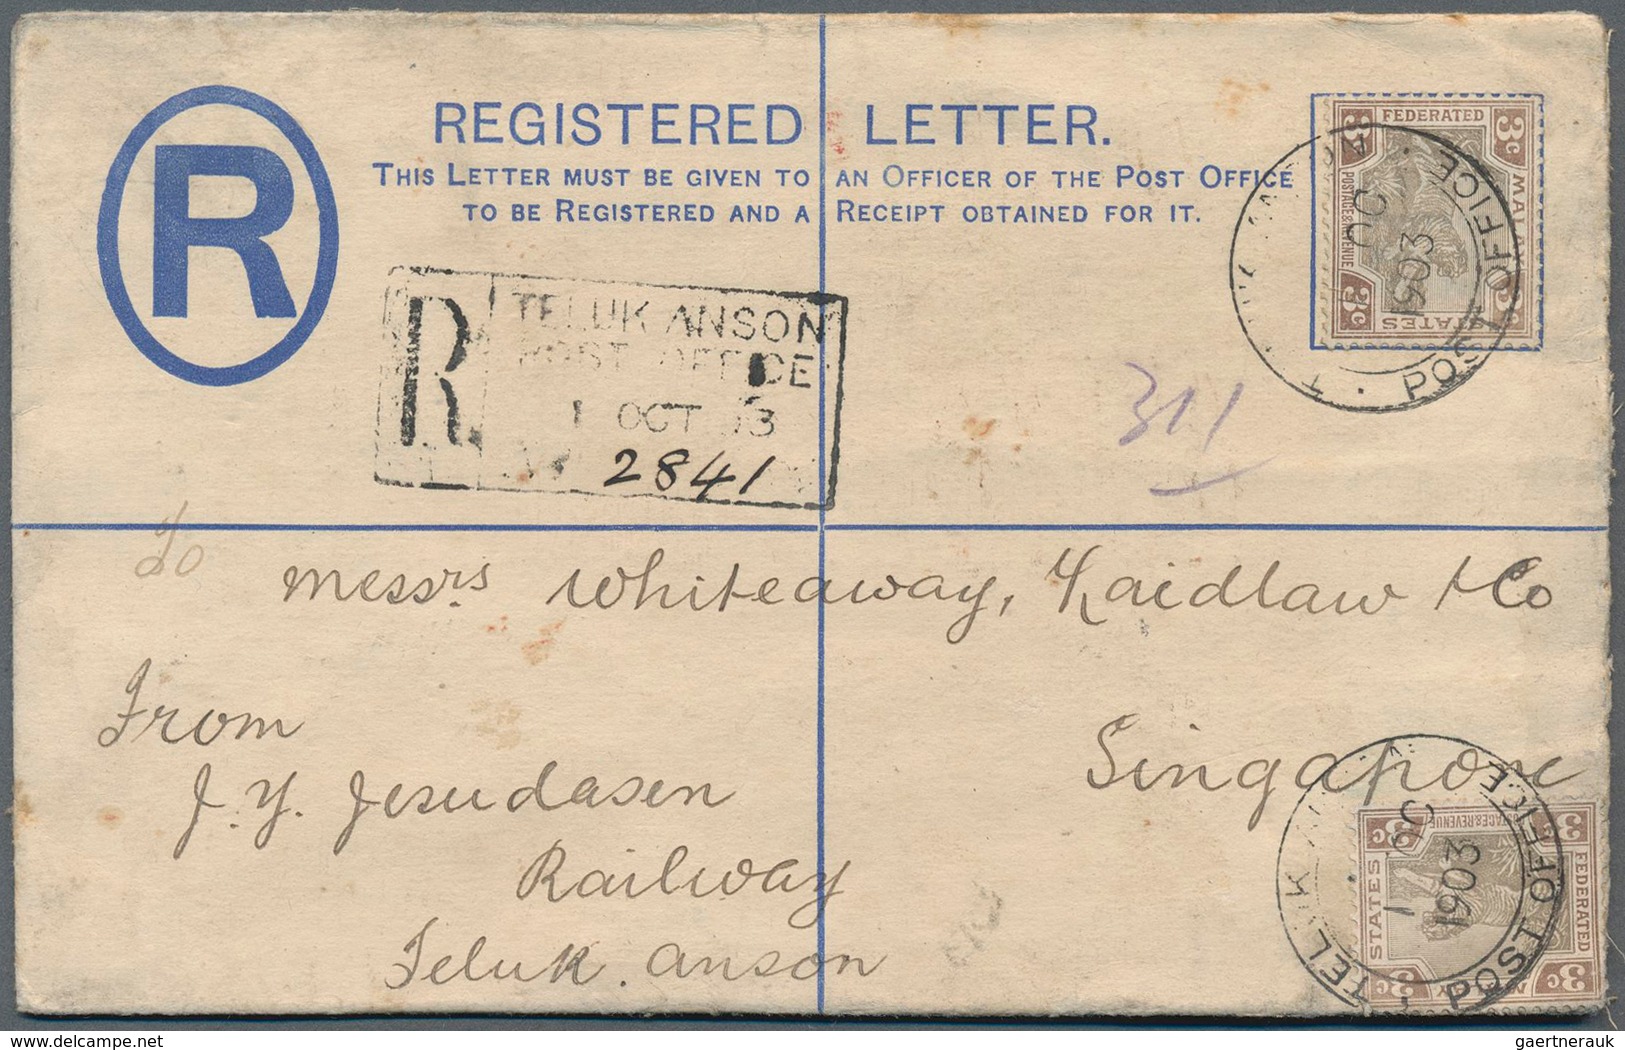 REGISTERED LETTER.
THIS LETTER MUST BE GIVEN TO AN OFFICER OF THE POST OFFICE
TO BE REGISTERED AND A RECEIPT OBTAINED FOR IT.
R
R
TELUK ANSON
POST OFFICE
1 OCT 03
2841
311
FEDERATED
MALAY
STATES
POSTAGE & REVENUE
3c 3c 3c 3c
POST OFFICE
OC
1903
To
Messrs Whiteaway, Laidlaw & Co
Singapore
From
J. Y. Jesudasen
Railway
Teluk. Anson
TELUK ANSON
POST OFFICE
1 OC
1903
FEDERATED
MALAY
STATES
POSTAGE & REVENUE
3c 3c 3c 3c
delcampe.net
gaertnerauk